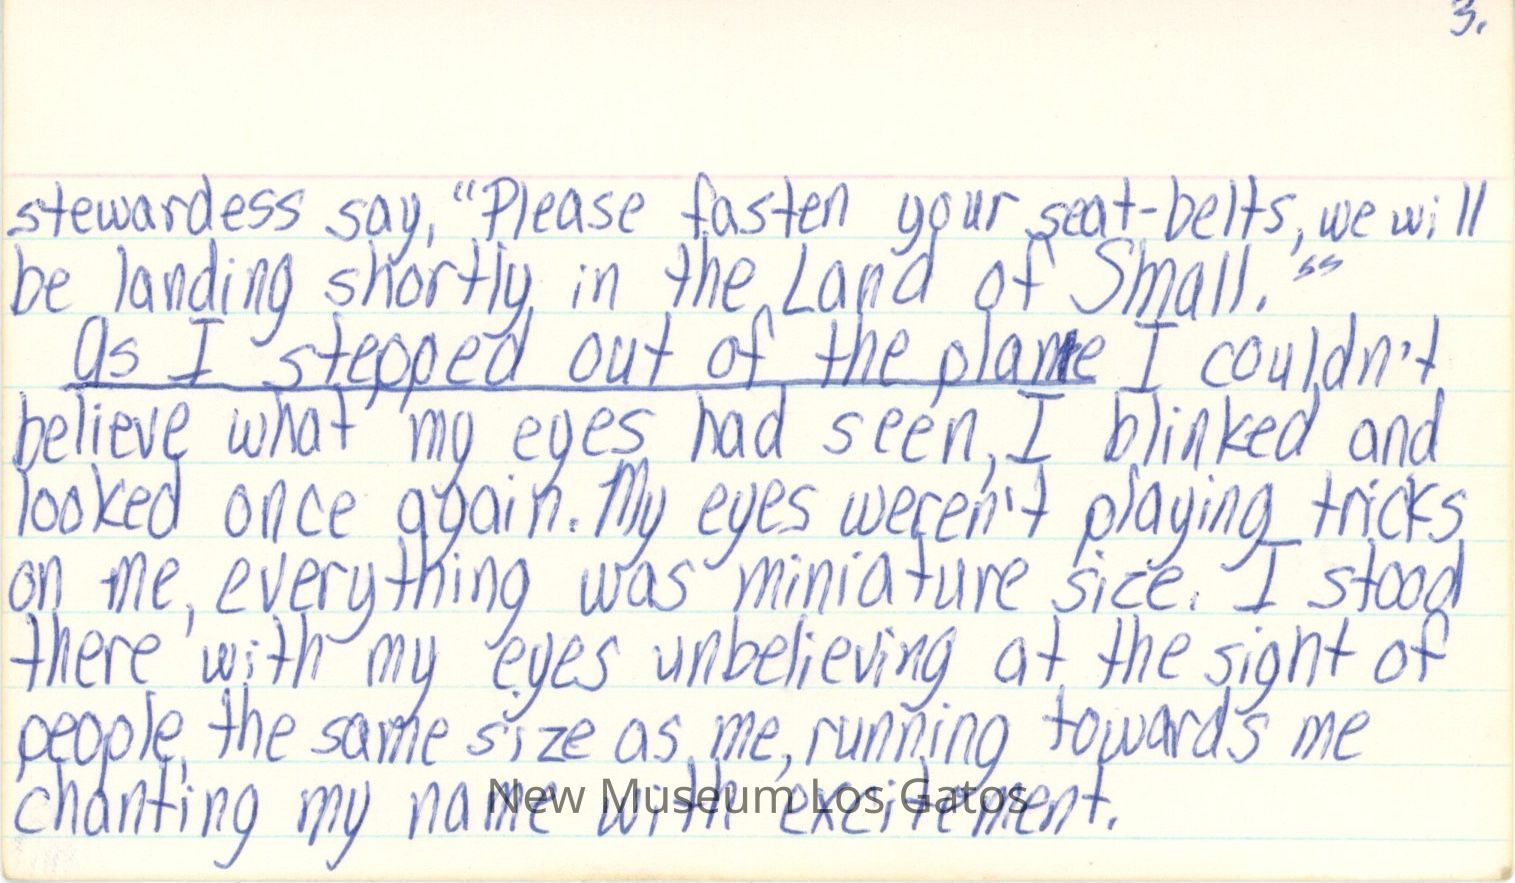 3.
stewardess say, "Please fasten your seat-belts, we will
be landing shortly in the Land of Small."
As I stepped out of the plane I couldn't
believe what my eyes had seen, I blinked and
looked once again. My eyes weren't playing tricks
on me, everything was miniature size. I stood
there with my eyes unbelieving at the sight of
people, the same size as me, running towards me
chanting my name with excitement.
New Museum Los Gatos